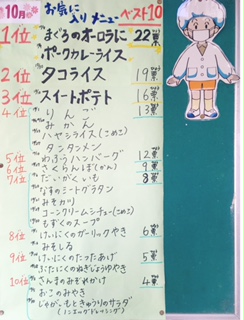 10月 お気に入りメニュー ベスト10
1位 まぐろのオーロラに 22票
ポークカレーライス
2位 タコライス 19票
3位 スイートポテト 16票
4位 りんご 13票
みかん
ハヤシライス(こめこ)
タンタンメン
5位 わふうハンバーグ 12票
6位 さくらんぼ(かん) 9票
7位 だいがくいも 8票
なすのミートグラタン
みそかつ
コーンクリームシチュー(こめこ)
もずくのスープ
8位 けいにくのガーリックやき 6票
みそしる
9位 けいにくのたつたあげ 5票
ぶたにくのねぎじょうゆやき
10位 さんまのみぞれかけ 4票
おこのみやき
じゃがいもときゅうりのサラダ
(ノンエッグドレッシング)